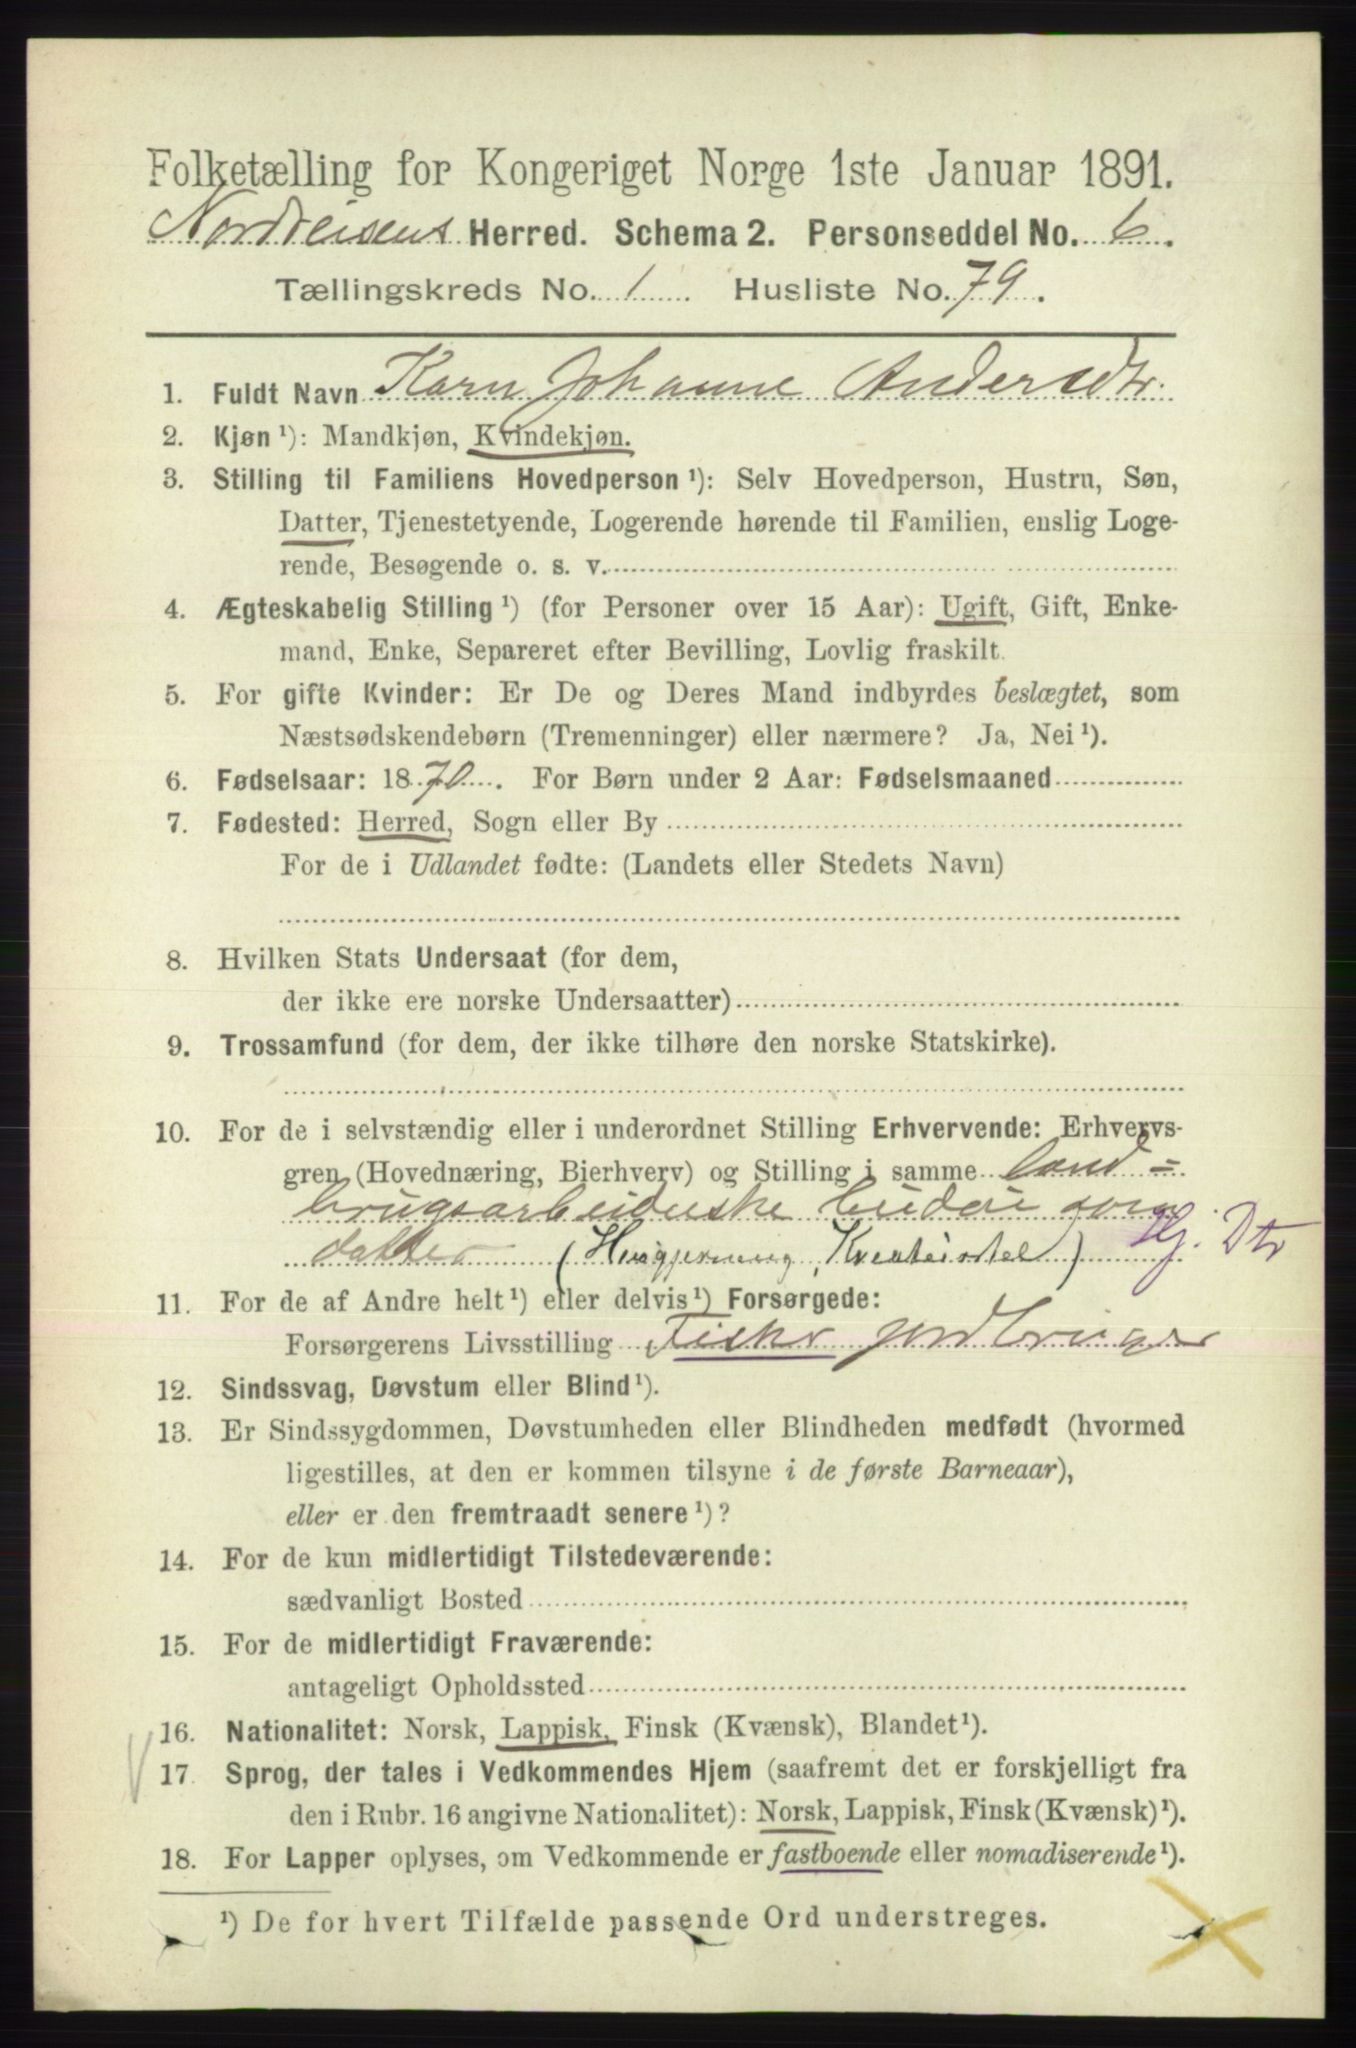 Folketælling for Kongeriget Norge 1ste Januar 1891.
Nordreisens Herred. Schema 2. Personseddel No. 6.
Tællingskreds No. 1. Husliste No. 79.
1. Fuldt Navn Karn Johanne Andersdtr.
2. Kjøn ¹): Mandkjøn, Kvindekjøn.
3. Stilling til Familiens Hovedperson ¹): Selv Hovedperson, Hustru, Søn,
Datter, Tjenestetyende, Logerende hørende til Familien, enslig Loge-
rende, Besøgende o. s. v.
4. Ægteskabelig Stilling ¹) (for Personer over 15 Aar): Ugift, Gift, Enke-
mand, Enke, Separeret efter Bevilling, Lovlig fraskilt.
5. For gifte Kvinder: Er De og Deres Mand indbyrdes beslægtet, som
Næstsødskendebørn (Tremenninger) eller nærmere? Ja, Nei ¹).
6. Fødselsaar: 1870. For Børn under 2 Aar: Fødselsmaaned
7. Fødested: Herred, Sogn eller By
For de i Udlandet fødte: (Landets eller Stedets Navn)
8. Hvilken Stats Undersaat (for dem,
der ikke ere norske Undersaatter)
9. Trossamfund (for dem, der ikke tilhøre den norske Statskirke).
10. For de i selvstændig eller i underordnet Stilling Erhvervende: Erhvervs-
gren (Hovednæring, Bierhverv) og Stilling i samme land=
brugsarbeiderske budeie som
datter (Husgjerning, Kreaturstel) Hj. Dtr
11. For de af Andre helt ¹) eller delvis ¹) Forsørgede:
Forsørgerens Livsstilling Fisker jordbruger
12. Sindssvag, Døvstum eller Blind ¹).
13. Er Sindssygdommen, Døvstumheden eller Blindheden medfødt (hvormed
ligestilles, at den er kommen tilsyne i de første Barneaar),
eller er den fremtraadt senere ¹)?
14. For de kun midlertidigt Tilstedeværende:
sædvanligt Bosted
15. For de midlertidigt Fraværende:
antageligt Opholdssted
16. Nationalitet: Norsk, Lappisk, Finsk (Kvænsk), Blandet ¹).
17. Sprog, der tales i Vedkommendes Hjem (saafremt det er forskjelligt fra
den i Rubr. 16 angivne Nationalitet): Norsk, Lappisk, Finsk (Kvænsk) ¹).
18. For Lapper oplyses, om Vedkommende er fastboende eller nomadiserende ¹).
¹) De for hvert Tilfælde passende Ord understreges.